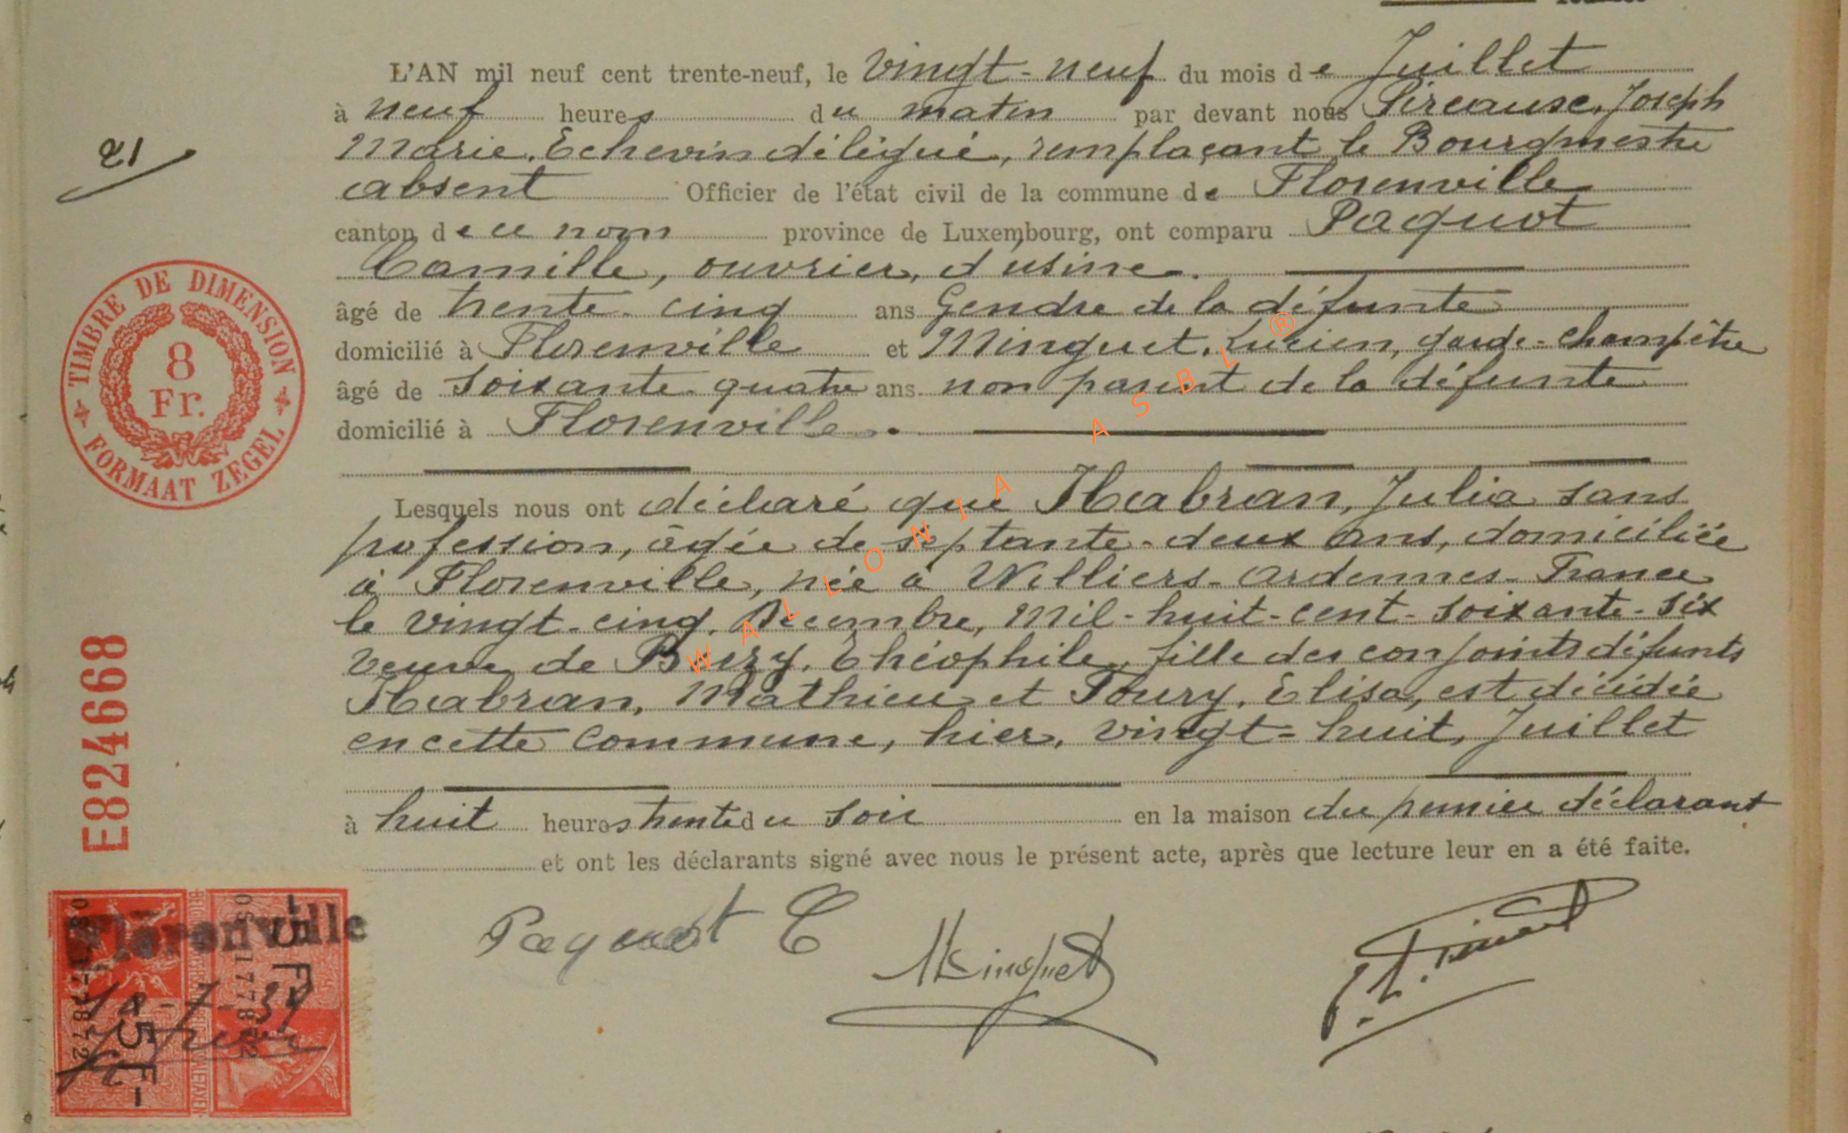 L'AN mil neuf cent trente-neuf, le vingt-neuf du mois de Juillet
à neuf heures du matin par devant nous Pireaux, Joseph
Marie, Echevin délégué, remplaçant le Bourgmestre
absent Officier de l'état civil de la commune de Florenville
canton de ce nom province de Luxembourg, ont comparu Paquot
Camille, ouvrier, d'usine.
âgé de trente-cinq ans Gendre de la défunte
domicilié à Florenville et Minguet, Lucien, garde-champêtre
âgé de soixante-quatre ans non parent de la défunte
domicilié à Florenville.
Lesquels nous ont déclaré que Habran, Julia sans
profession, âgée de septante-deux ans, domiciliée
à Florenville, née à Williers-Ardennes-France
le vingt-cinq, Décembre, Mil-huit-cent-soixante-six
veuve de Théophile, fille des conjoints défunts
Habran, Mathieu et Toury, Elisa, est décédée
en cette commune, hier, vingt-huit, Juillet
à huit heures trente du soir en la maison du premier déclarant
et ont les déclarants signé avec nous le présent acte, après que lecture leur en a été faite.
Paquot C
Minguet
21
TIMBRE DE DIMENSION
8
Fr.
FORMAAT ZEGEL
E824668
Florenville
5 F
5 F
WALLONIA ASBL ®